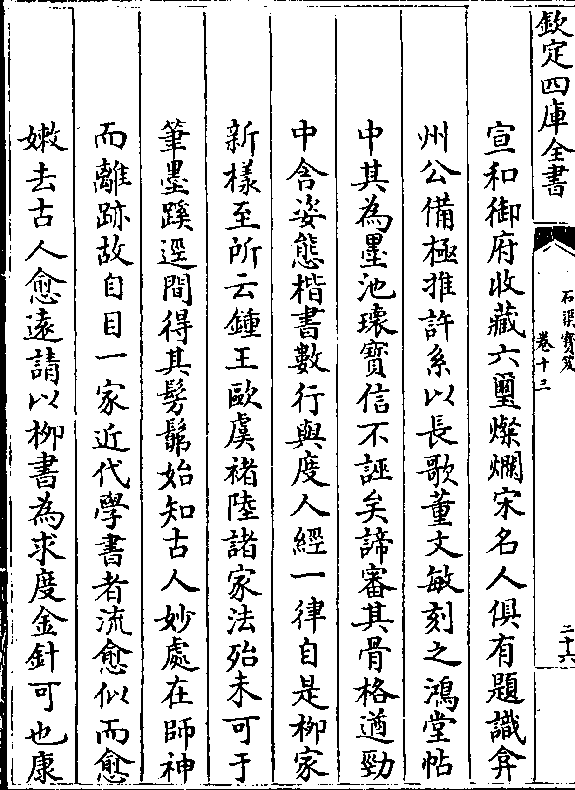 欽定四庫全書
石渠寳笈
卷十三
二十六
宣和御府收藏六璽燦爛宋名人俱有題識弇
州公備極推許系以長歌董文敏刻之鴻堂帖
中其為墨池瓌寳信不誣矣諦審其骨格遒勁
中含姿態楷書數行與度人經一律自是柳家
新樣至所云鍾王歐虞褚陸諸家法殆未可于
筆墨蹊逕間得其髣髴始知古人妙處在師神
而離跡故自目一家近代學書者流愈似而愈
嫩去古人愈逺請以柳書為求度金針可也康